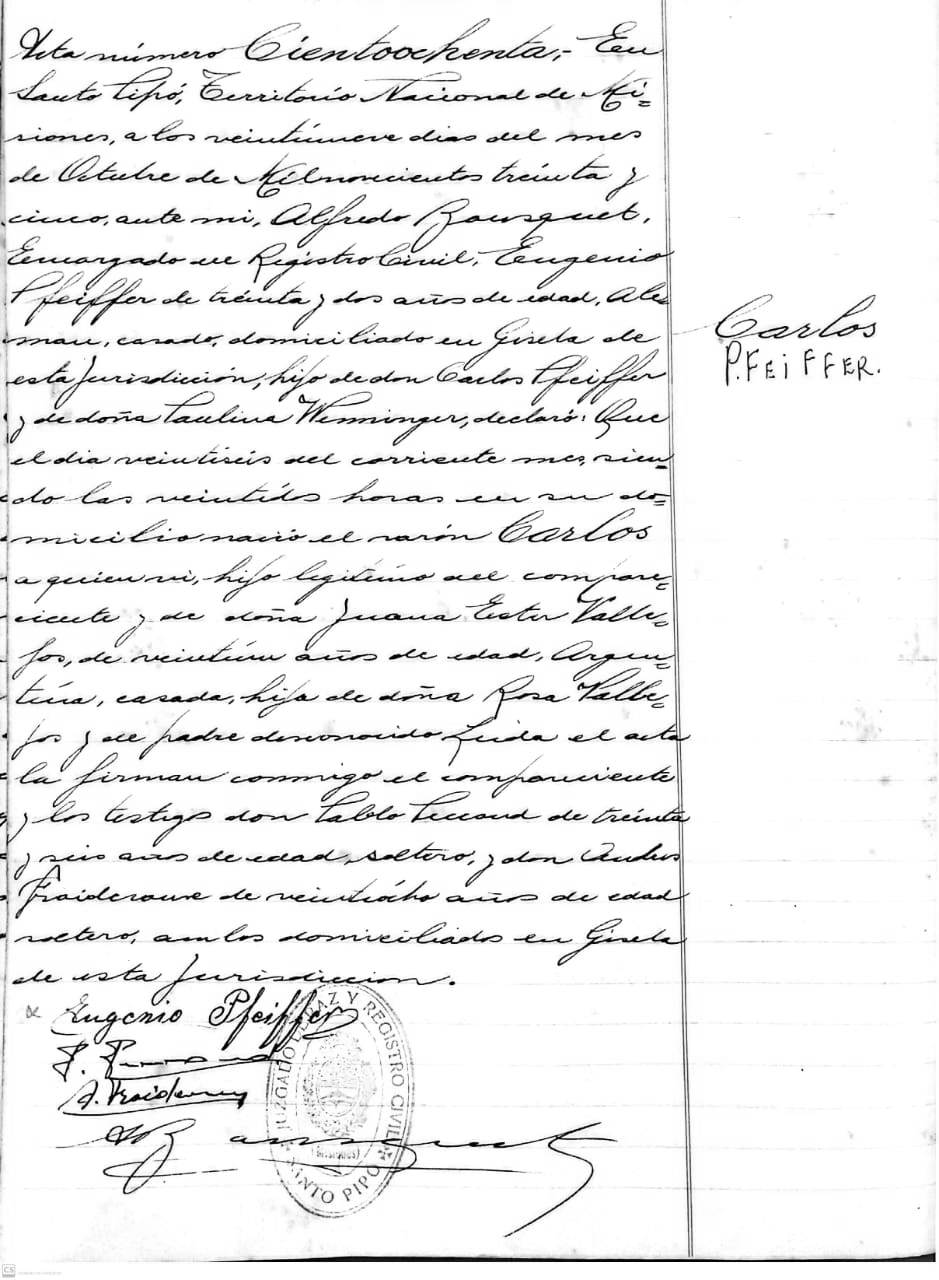 Acta número Cientoochenta,- En
Santo Pipó, Territorio Nacional de Mi=
siones, a los veintinueve dias del mes
de Octubre de Milnovecientos treinta y
cinco, ante mi, Alfredo Bousquet,
Encargado de Registro Civil, Eugenio
Pfeiffer de treinta y dos años de edad, Ale
man, casado, domiciliado en Gisela de
esta Jurisdicción, hijo de don Carlos Pfeiffer
y de doña Paulina Wenninger, declaró: Que
el dia veintiseis del corriente mes, sien=
do las veintidós horas en su do=
micilio nació el varón Carlos
a quien vi, hijo legitimo del compare=
ciente y de doña Juana Ester Valle=
jos, de veintiún años de edad, Argen=
tina, casada, hija de doña Rosa Valle=
jos y de padre desconocido Leida el acta
la firman conmigo el compareciente
y los testigos don Pablo de treinta
y seis años de edad, soltero, y don Andres
de veintiocho años de edad
soltero, ambos domiciliados en Gisela
de esta Jurisdiccion.
Carlos
PFEIFFER.
Eugenio Pfeiffer
JUZGADO DE PAZ Y REGISTRO CIVIL
SANTO PIPÓ
(MISIONES)
CS